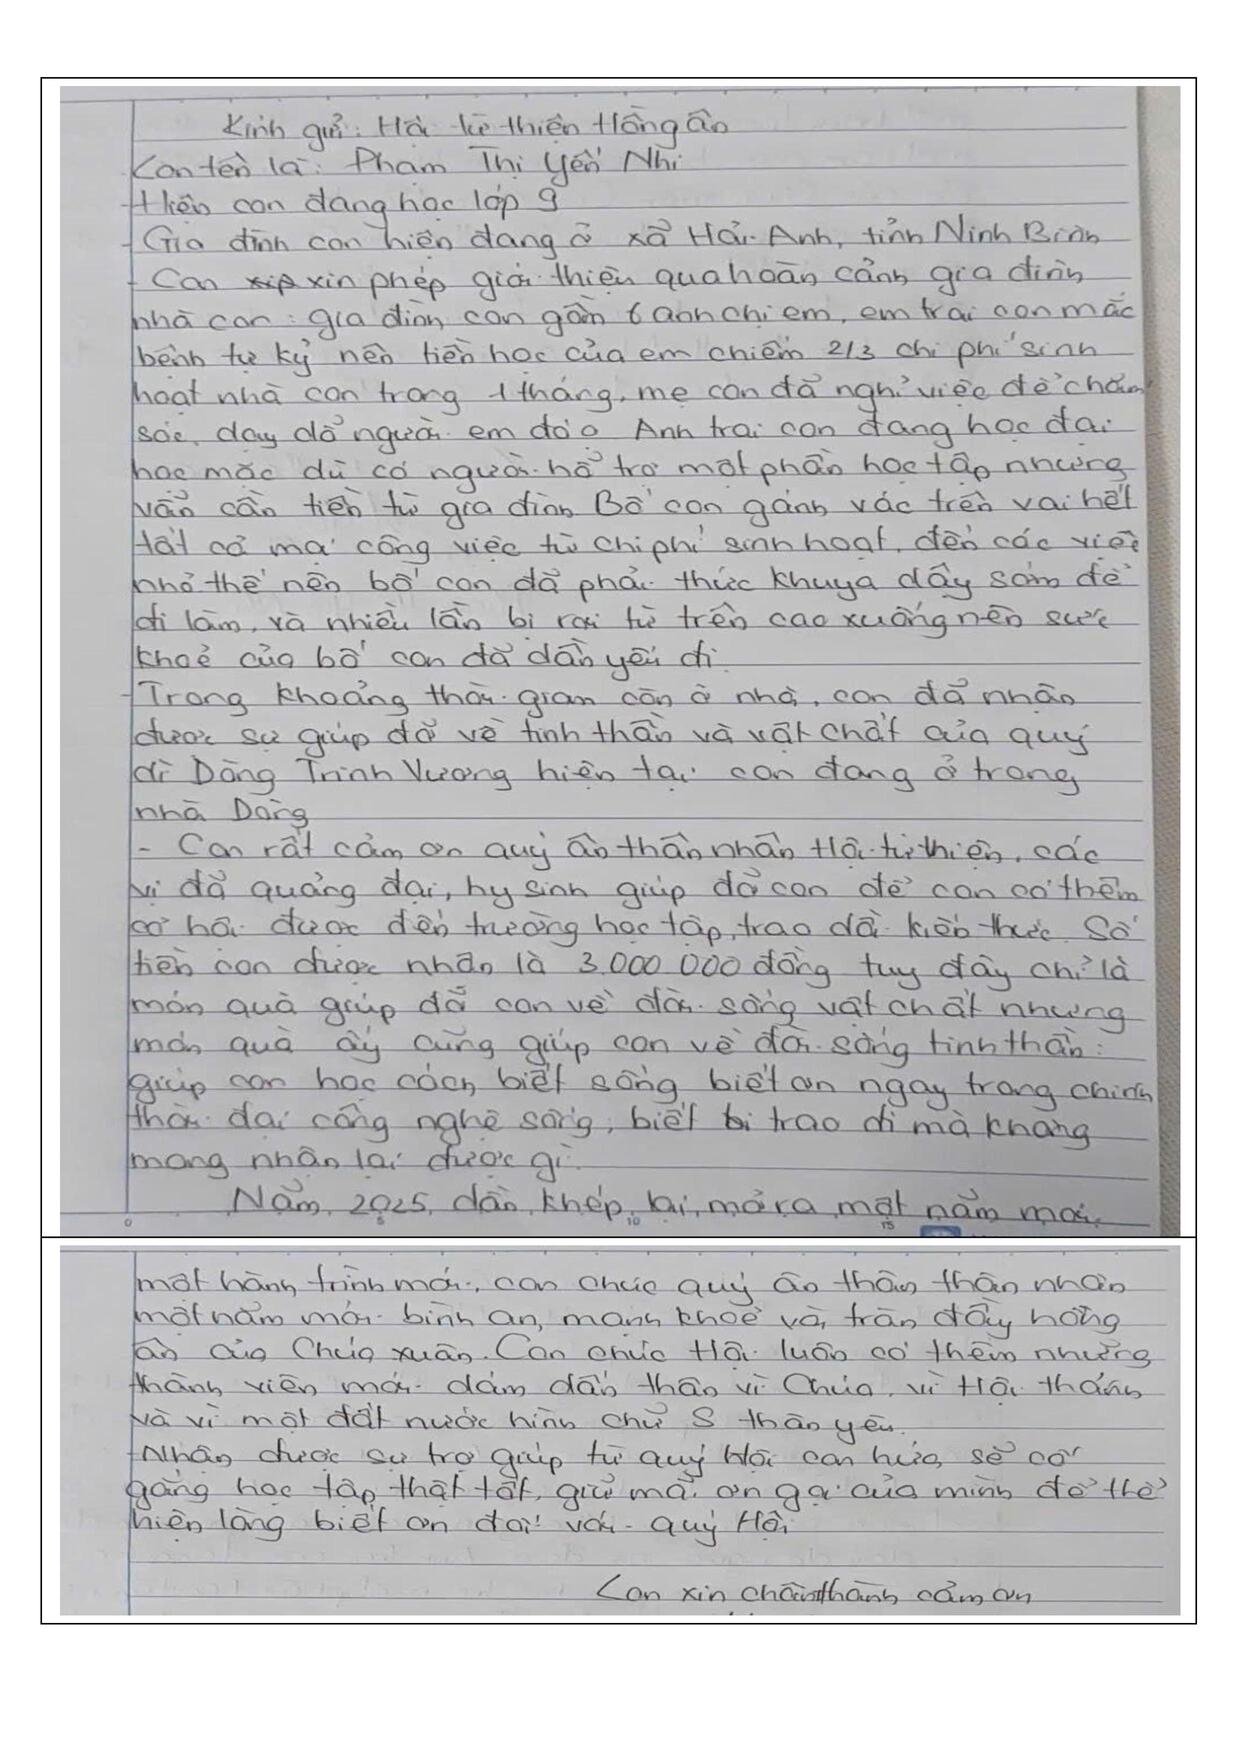 Kính gửi: Hội từ thiện Hồng ân
Con tên là: Phạm Thị Yến Nhi
-Hiện con đang học lớp 9
- Gia đình con hiện đang ở xã Hải Anh, tỉnh Ninh Bình
- Con xin phép giới thiệu qua hoàn cảnh gia đình
nhà con: gia đình con gồm 6 anh chị em, em trai con mắc
bệnh tự kỷ nên tiền học của em chiếm 2/3 chi phí sinh
hoạt nhà con trong 1 tháng, mẹ con đã nghỉ việc để chăm
sóc, dạy dỗ người em đó. Anh trai con đang học đại
học mặc dù có người hỗ trợ một phần học tập nhưng
vẫn cần tiền từ gia đình Bố con gánh vác trên vai hết
tất cả mọi công việc từ chi phí sinh hoạt, đến các việc
nhỏ thế nên bố con đã phải thức khuya dậy sớm để
đi làm, và nhiều lần bị rơi từ trên cao xuống nên sức
khoẻ của bố con đã dần yếu đi.
- Trong khoảng thời gian còn ở nhà, con đã nhận
được sự giúp đỡ về tinh thần và vật chất của quý
dì Dòng Trinh Vương hiện tại con đang ở trong
nhà Dòng
- Con rất cảm ơn quý ân thân nhân Hội từ thiện, các
vị đã quảng đại, hy sinh giúp đỡ con để con có thêm
cơ hội được đến trường học tập, trao dồi kiến thức. Số
tiền con được nhận là 3.000 000 đồng tuy đây chỉ là
món quà giúp đỡ con về đời sống vật chất nhưng
món quà ấy cũng giúp con về đời sống tinh thần:
giúp con học cách biết sống biết ơn ngay trong chính
thời đại công nghệ sống, biết trao đi mà không
mong nhận lại được gì.
Năm 2025 dần khép lại, mở ra một năm mới,
một hành trình mới, con chúc quý ân thân thân nhân
một năm mới bình an, mạnh khoẻ và tràn đầy hồng
ân của Chúa xuân. Con chúc Hội luôn có thêm những
thành viên mới dám dấn thân vì Chúa, vì Hội thánh
và vì một đất nước hình chữ S thân yêu.
-Nhận được sự trợ giúp từ quý Hội con hứa sẽ cố
gắng học tập thật tốt, giữ mãi ơn gọi của mình để thể
hiện lòng biết ơn đối với quý Hội
Con xin chân thành cảm ơn